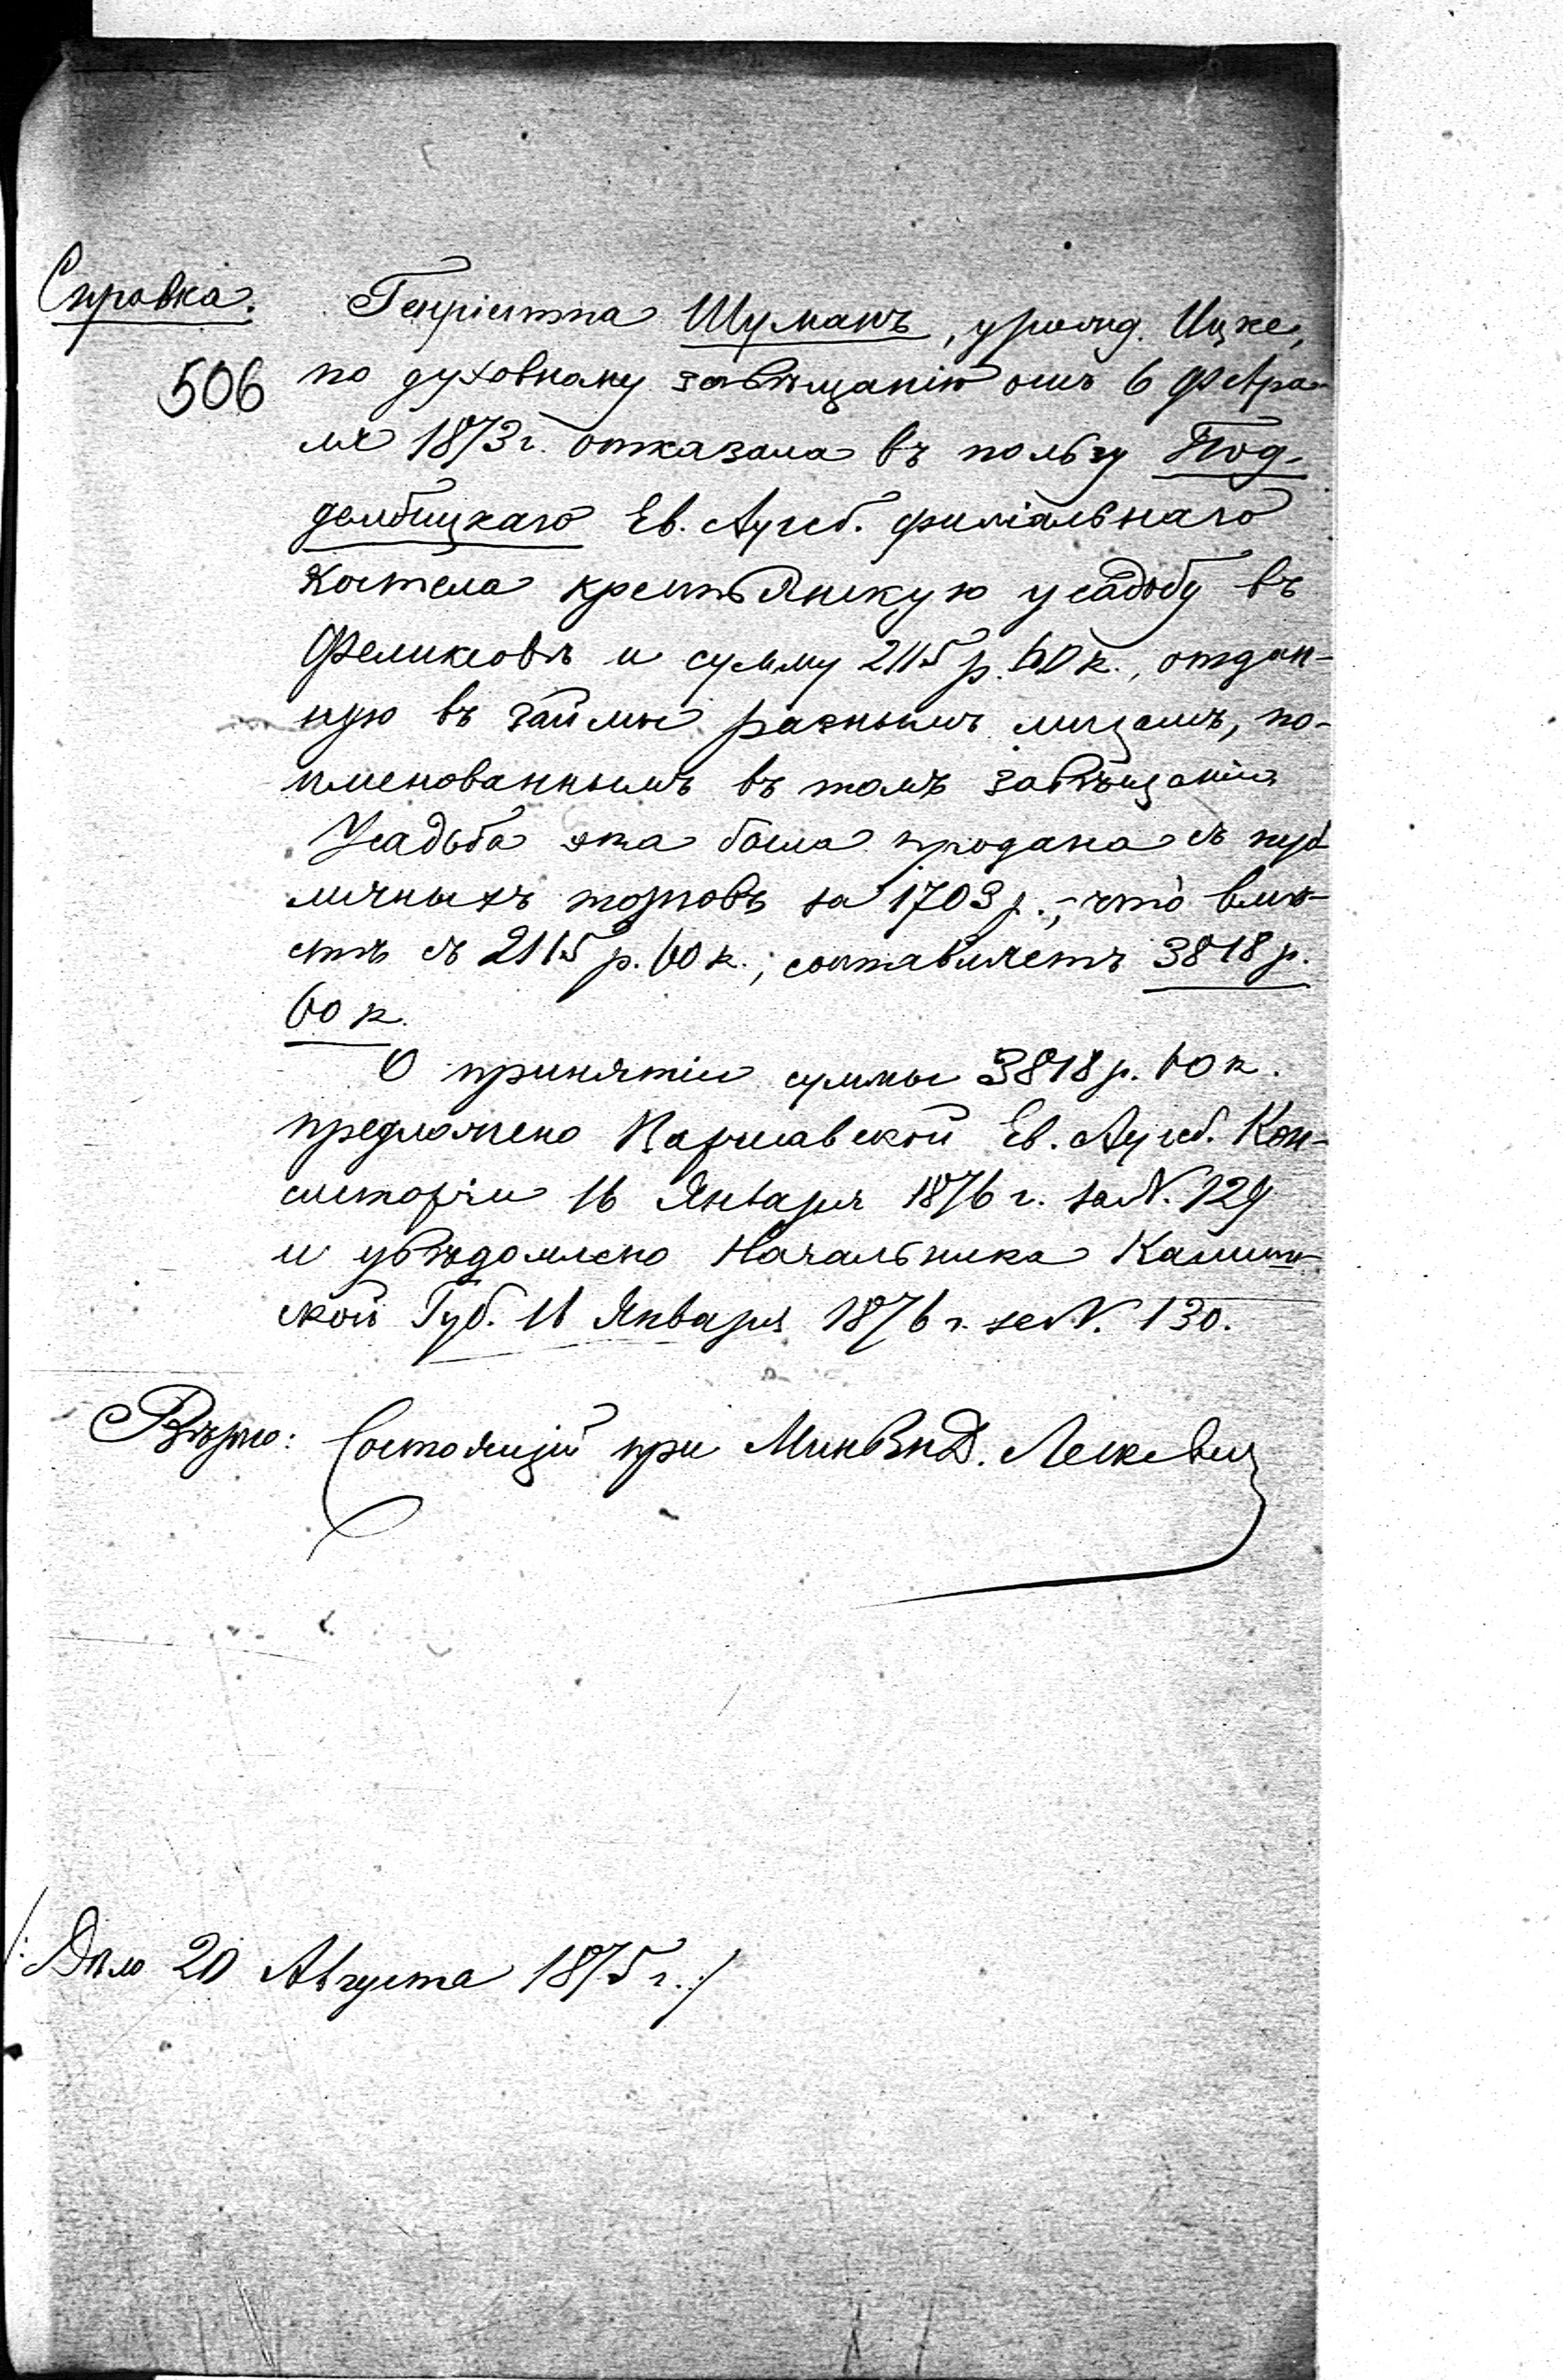 Справка.
506
Генріетта Шуманъ, урожд. Ицке,
по духовному завѣщанію отъ 6 Февра-
ля 1873 г. отказала въ пользу Под-
дембицкаго Ев. Аугсб. филіальнаго
костела крестьянскую усадьбу въ
Феликсовѣ и сумму 2115 р. 60 к., отдан-
ную въ займы разнымъ лицамъ, по-
именованнымъ въ томъ завѣщаніи
Усадьба эта была продана съ пуб
личныхъ торговъ за 1703 р., что вмѣ-
стѣ съ 2115 р. 60 к., составляетъ 3818 р.
60 к.
О принятіи суммы 3818 р. 60 к.
предложено Варшавской Ев. Аугсб. Кон-
систоріи 16 Января 1876 г. за N. 129
и увѣдомлено Начальника Калиш-
ской Губ. 16 Января 1876 г. за N. 130.
Вѣрно: Состоящій при Мин Вн Д.
/: Дѣло 20 Августа 1875 г. :/